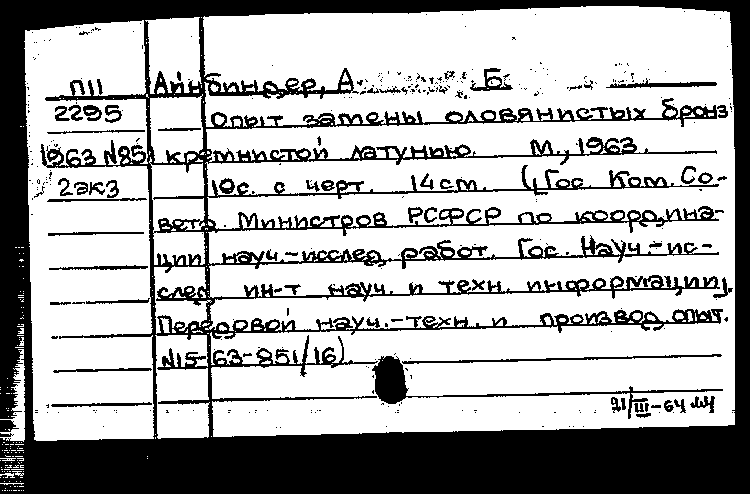 П11 Айнбиндер, А. Б.
2295 Опыт замены оловянистых бронз
1963 №851 кремнистой латунью. М., 1963.
2экз 10с. с черт. 14см. (Гос. Ком. Со-
вета Министров РСФСР по координа-
ции науч.-исслед. работ. Гос. Науч.-ис-
след. ин-т науч. и техн. информации).
Передовой науч.-техн. и производ. опыт.
№15-63-851/16).
21/III-64